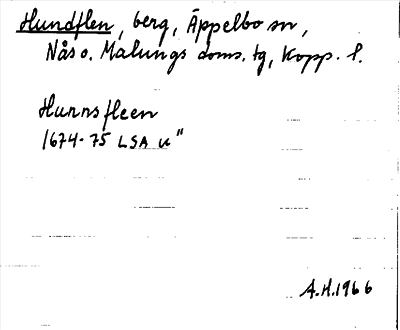 Hundflen, berg, Äppelbo sn,
Nås o. Malungs doms. tg, Kopp. l.
Hunnsfleen
1674-75 LSA u"
A.H.1966